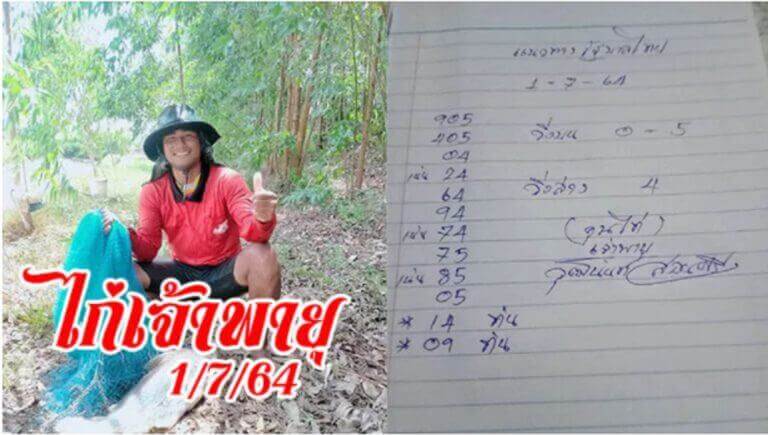 ไก่เจ้าพายุ
1/7/64
แนวทางรัฐบาลไทย
1-7-64
905
405 วิ่งบน 0-5
04
เน่น 24
64 วิ่งล่าง 4
94
เน่น 74
75
เจ้าพายุ
เน่น 85
05
* 14
* 09